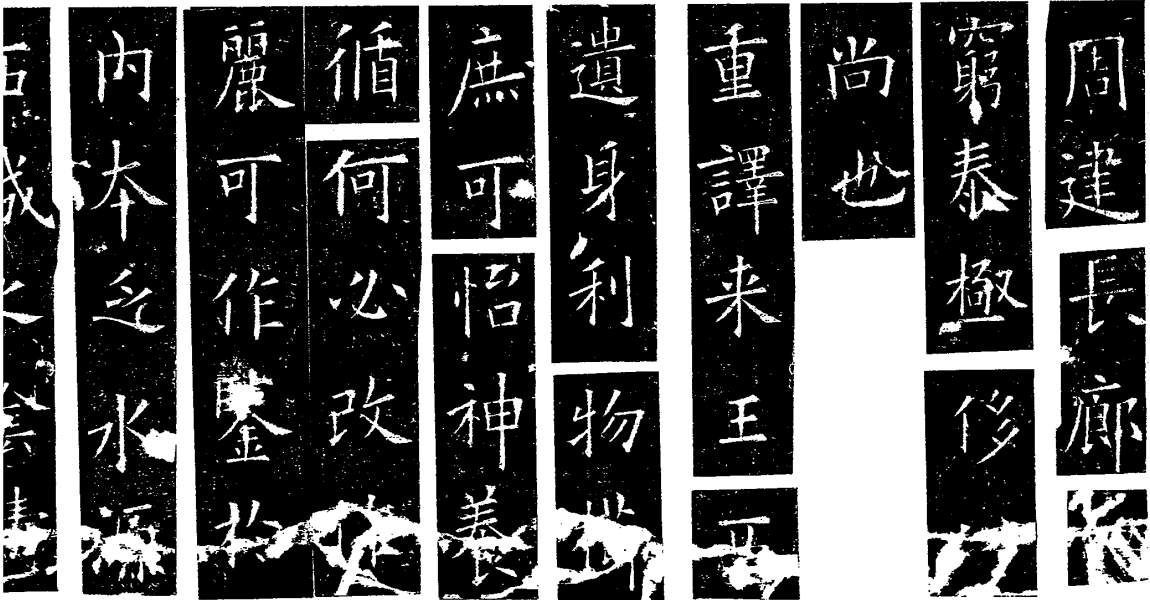 周建長廊
窮泰極侈
尚也
重譯来王
遺身利物
庶可怡神養
循何必改
麗可作鑒於
内本乏水源
之